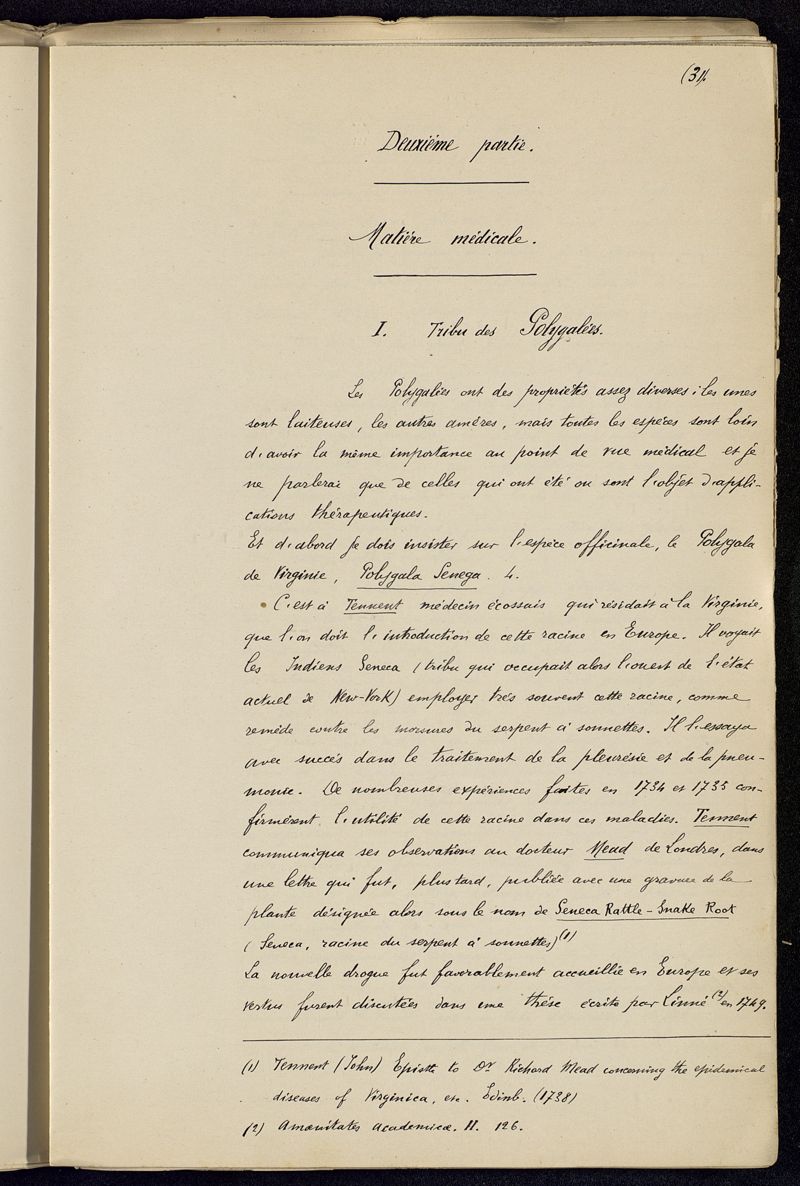 (31.
Deuxième partie.
Matière médicale.
I. Tribu des Polygalées.
Les Polygalées ont des propriétés assez diverses : les unes
sont laiteuses, les autres amères, mais toutes les espèces sont loin
d'avoir la même importance au point de vue médical et je
ne parlerai que de celles qui ont été ou sont l'objet d'appli-
cations thérapeutiques.
Et d'abord je dois insister sur l'espèce officinale, le Polygala
de Virginie, Polygala Senega. L.
C'est à Tennent médecin écossais qui résidait à la Virginie,
que l'on doit l'introduction de cette racine en Europe. Il voyait
les Indiens Seneca (tribu qui occupait alors l'ouest de l'état
actuel de New-York) employer très souvent cette racine, comme
remède contre les morsures du serpent à sonnettes. Il l'essaya
avec succès dans le traitement de la pleurésie et de la pneu-
monie. De nombreuses expériences faites en 1734 et 1735 con-
firmèrent l'utilité de cette racine dans ces maladies. Tennent
communiqua ses observations au docteur Mead de Londres, dans
une lettre qui fut, plus tard, publiée avec une gravure de la
plante désignée alors sous le nom de Seneca Rattle-Snake Root
(Seneca, racine du serpent à sonnettes) (1)
La nouvelle drogue fut favorablement accueillie en Europe et ses
vertus furent discutées dans une thèse écrite par Linné (2) en 1749.
(1) Tennent (John) Epistle to Dr Richard Mead concerning the epidemical
diseases of Virginica, etc. Edinb. (1738)
(2) Amœnitates Academicæ. II. 126.